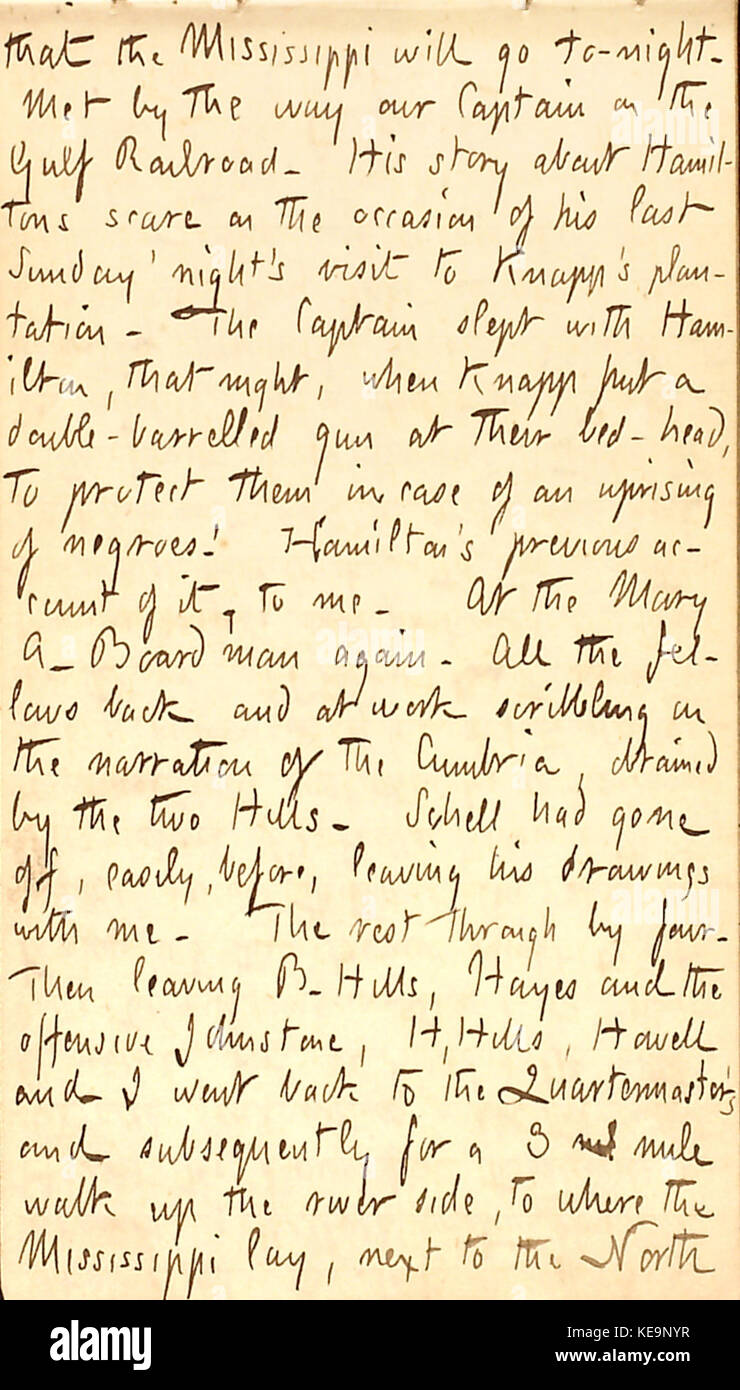 that the Mississippi will go to-night.
Met by the way our Captain on the
Gulf Railroad. His story about Hamil-
tons scare on the occasion of his last
Sunday' night's visit to Knapp's plan-
tation. The Captain slept with Ham-
ilton, that night, when Knapp put a
double-barrelled gun at their bed-head,
to protect them in case of an uprising
of negroes! Hamilton's previous ac-
count of it, to me. At the Mary
A. Boardman again. All the fel-
lows back and at work scribbling on
the narration of the Cumbria, obtained
by the two Hills. Schell had gone
off, easily, before, leaving his drawings
with me. The rest through by four.
Then leaving B. Hills, Hayes and the
offensive Johnstone, H. Hills, Howell
and I went back to the Quartermaster's
and subsequently for a 3 mile
walk up the river side, to where the
Mississippi lay, next to the North
alamy
alamy
alamy
alamy
alamy
Image ID: KE9NYR
www.alamy.com